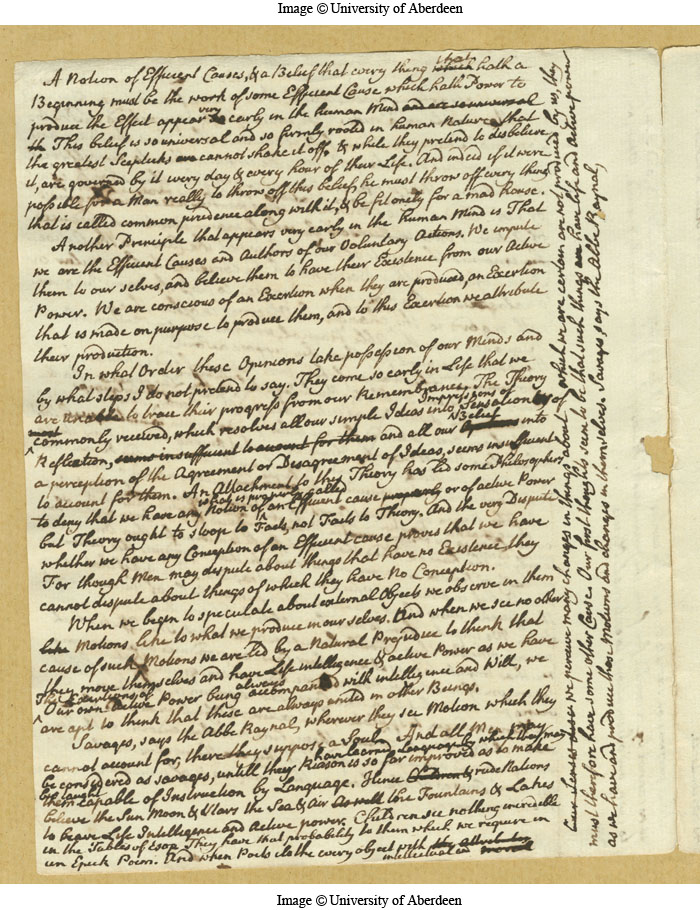 Image © University of Aberdeen
A Notion of Efficient Causes, & a Belief that every thing that which hath a
Beginning must be the work of some Efficient Cause which hath Power to
produce the Effect appear very early in the human Mind and are so universal
This belief is so universal and so firmly rooted in human Nature that
the greatest Scepticks cannot shake it off. & while they pretend to disbelieve
it, are governed by it every day & every hour of their Life. And indeed if it were
possible for a Man really to throw off this belief, he must throw off every thing
that is called common prudence along with it, & be fit onely for a mad house.
Another Principle that appears very early in the human Mind is That
we are the Efficient Causes and Authors of our Voluntary Actions. We impute
them to our selves, and believe them to have their Existence from our Active
Power. We are conscious of an Exertion when they are produced, an Exertion
that is made on purpose to produce them, and to this Exertion we attribute
their production.
In what Order these Opinions take possession of our Minds and
by what steps I do not pretend to say. They come so early in Life that we
are unable to trace their progress from our Remembrance. The Theory
commonly received, which resolves all our simple Ideas into Impressions of Sensation or of
Reflection, seems insufficient to account for them and all our Belief Opinions into
a perception of the Agreement or Disagreement of Ideas, seems insufficient
to account for them. An Attachment to this Theory has led some Philosophers
to deny that we have any Notion of what is properly called an Efficient cause properly or of active Power
but Theory ought to stoop to Facts, not Facts to Theory. And the very Dispute
whether we have any Conception of an Efficient cause proves that we have
For though Men may dispute about things that have no Existence, they
cannot dispute about things of which they have No Conception.
When we begin to speculate about external Objects we observe in them
like Motions like to what we produce in our selves. And when we see no other
cause of such Motions we are led by a Natural Prejudice to think that
they move themselves and have Life intelligence & active Power as we have
The Exertions of
Our own Active Power being always accompanied with intelligence and Will, we
are apt to think that these are always united in other Beings.
Savages, says the Abbe Raynal, wherever they see Motion which they
cannot account for, there they suppose a Soul. And all Men may
be considered as savages, untill they have learned Language by which they may
be taught their Reason is so far improved as to make
them capable of Instruction by Language. Hence & rude Nations
believe the Sun Moon & Stars the Sea & Air as well the Fountains & Lakes
to have Life Intelligence and Active power. Children see nothing incredible
in the Fables of Esop They have that probability to them which we require in
an Epick Poem. And when Poets clothe every object with intellectual
Our Senses we perceive many changes in things about us which we are certain are not produced by us, they
must therefore have some other Cause. Our first thoughts seem to be that such things have life and Active power
as we have and produce these Motions and changes in themselves. Savages, says the Abbe Raynal,
Image © University of Aberdeen